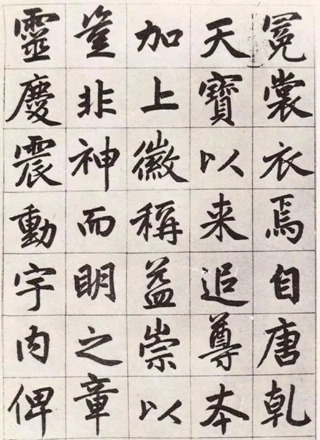 冕裳衣焉自唐乹
天寶以来追尊夲
加上徽稱益崇以
豈非神而明之章
靈慶震動宇内俾